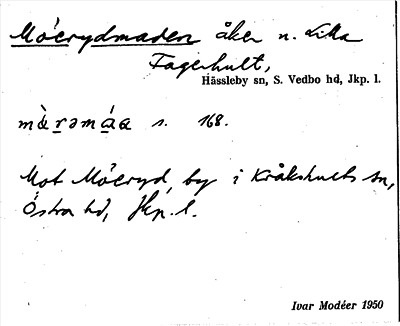 Moerydmaden åker n. Lilla
Fagerhult,
Hässleby sn, S. Vedbo hd, Jkp. l.
s. 168.
Mot Moeryd, by i Kråkshults sn,
Östra hd, Jkp. l.
Ivar Modéer 1950